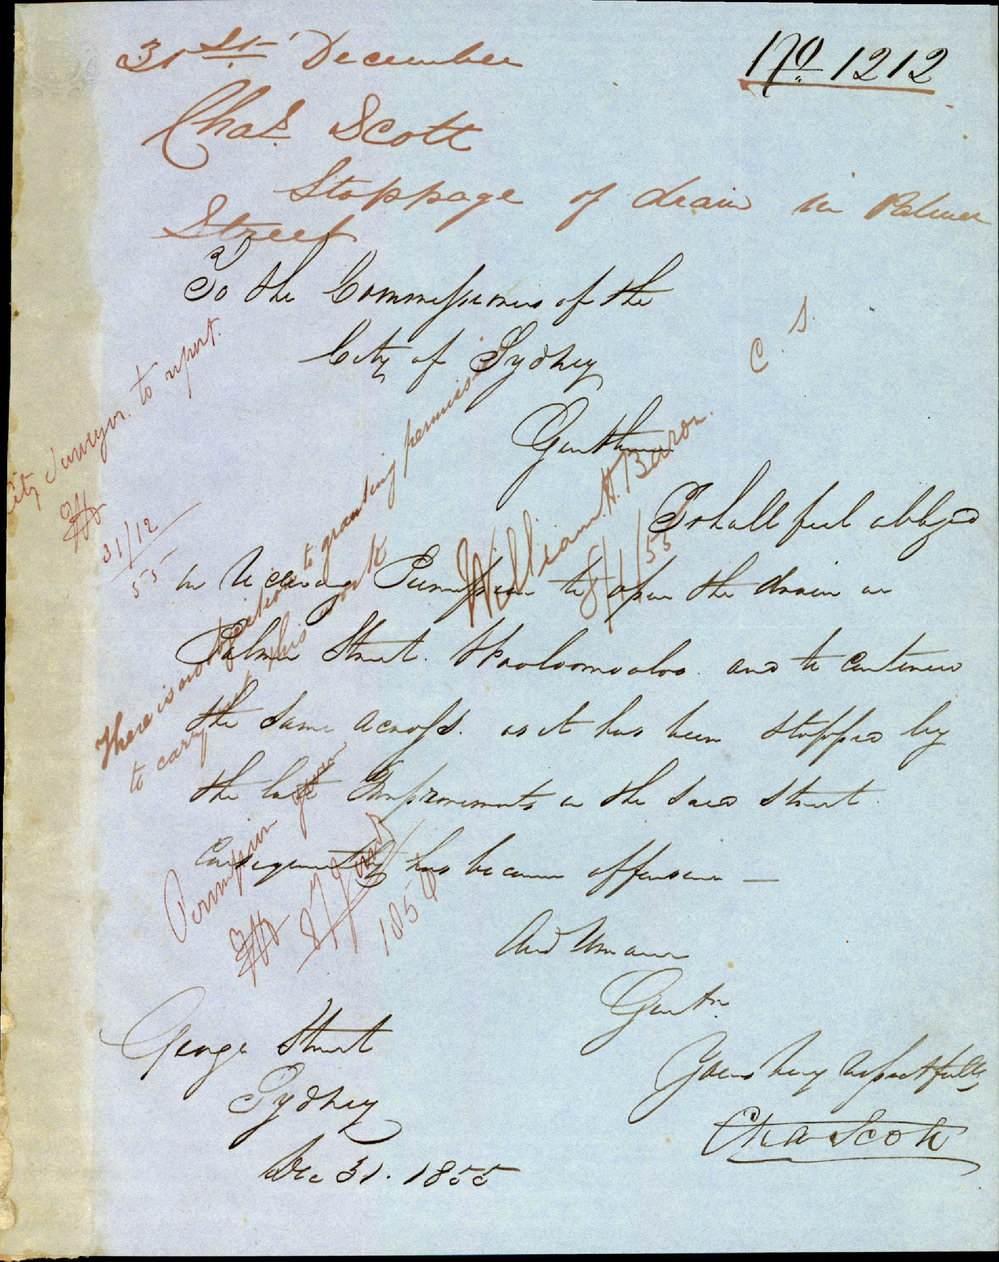 31st December
No 1212
Chas. Scott
Stoppage of drain in Palmer
Street
To the Commissioners of the
City of Sydney
C S.
Gentlemen
I shall feel obliged
in receiving Permission to open the drain in
Palmer Street. Woolloomooloo and to continue
the same across. as it has been stopped by
the late Improvements in the said Street
Consequently has become offensive —
And remain
Gentn.
Yours very respectfully
Chas Scott
George Street
Sydney
Dec 31. 1855
City Surveyor to report.
31/12
55
There is no objection to granting permission
to carry out this work
William H. Barron.
8/1/55
Permission given
8 / Jany
1856